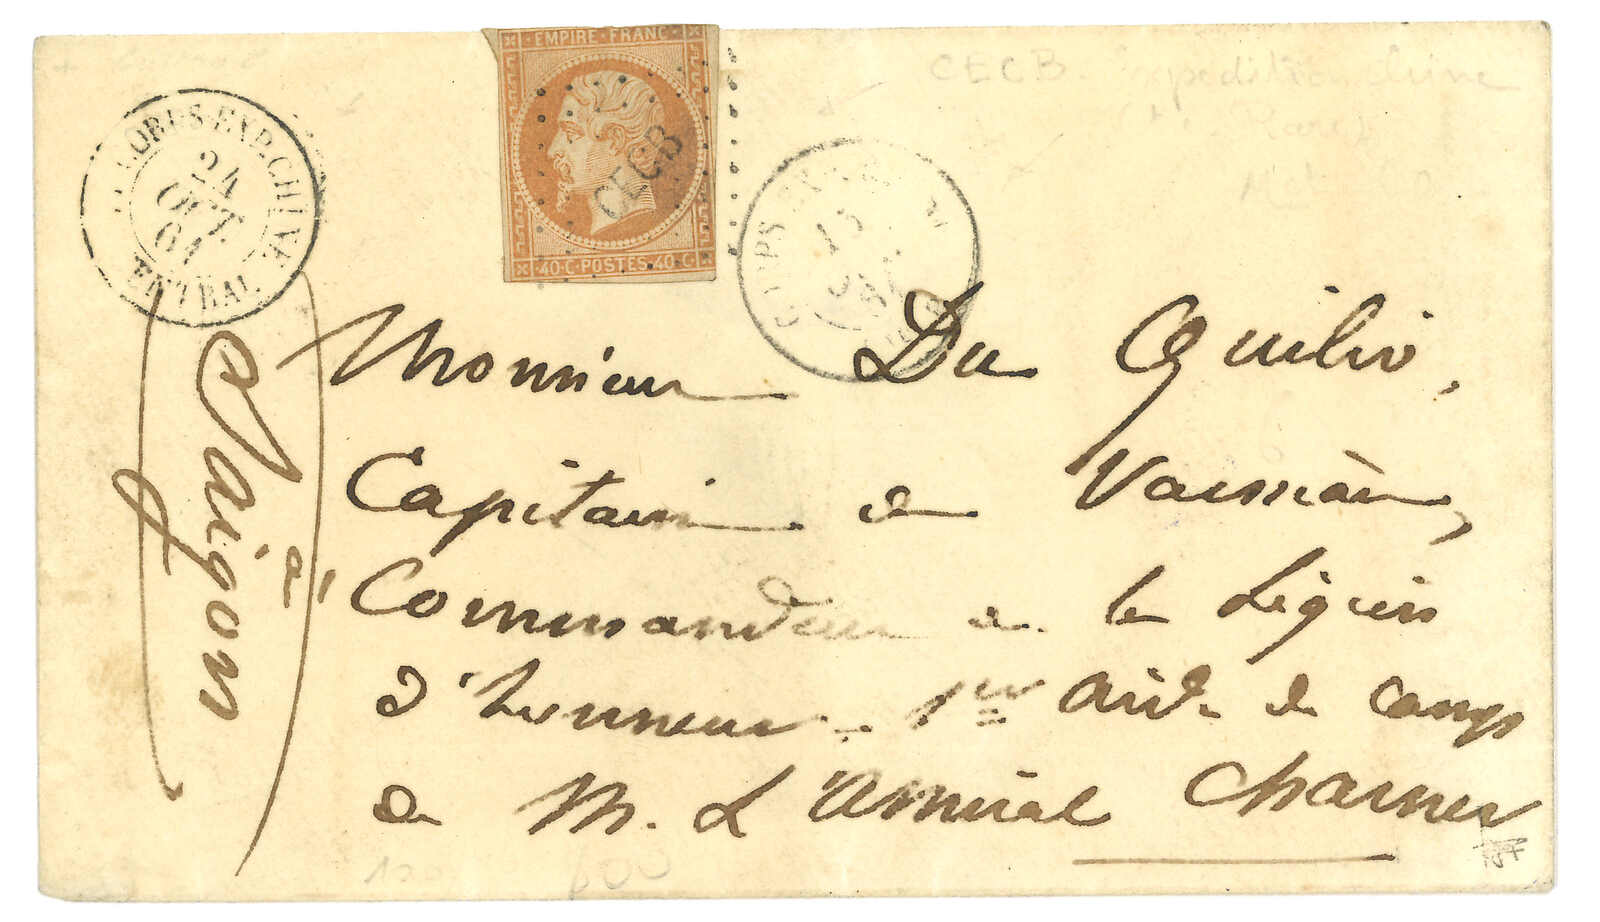 EMPIRE FRANC
CECB
40·C·POSTES·40·C
CORPS·EXP.CHINE
24
OCT.
61
CENTRAL
CORPS
13
CECB. Expédition Chine
Monsieur Du Quilio,
Capitaine de Vaisseau,
Commandeur de la Légion
d'honneur – 1er aide de camp
de M. L'Amiral Charner
à Saigon
120
600